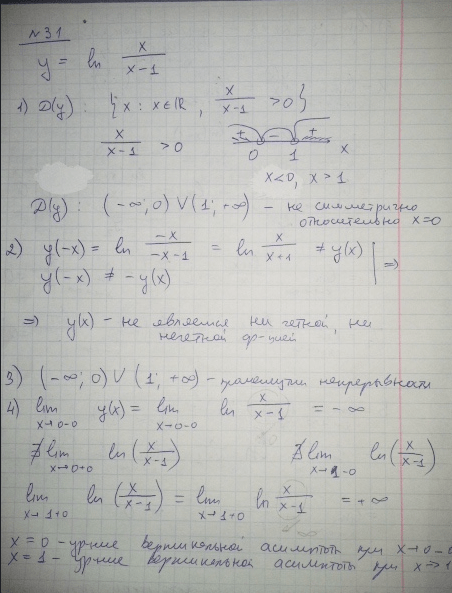 №31
y = ln x/(x-1)
1) D(y) : {x : x∈ℝ, x/(x-1) > 0}
x/(x-1) > 0 + - + 0 1 x
x<0, x>1
D(y) : (-∞; 0) ∨ (1; +∞) - не симметрично
относительно x=0
2) y(-x) = ln (-x)/(-x-1) = ln x/(x+1) ≠ y(x) | ⇒
y(-x) ≠ -y(x)
⇒ y(x) - не является ни четной, ни
нечетной ф-цией
3) (-∞; 0) ∨ (1; +∞) - промежутки непрерывности
4) lim x→0-0 y(x) = lim x→0-0 ln x/(x-1) = -∞
∄ lim x→0+0 ln(x/(x-1)) ∄ lim x→1-0 ln(x/(x-1))
lim x→1+0 ln(x/(x-1)) = lim x→1+0 ln x/(x-1) = +∞
x = 0 - ур-ние вертикальной асимптоты при x→0-0
x = 1 - ур-ние вертикальной асимптоты при x→1